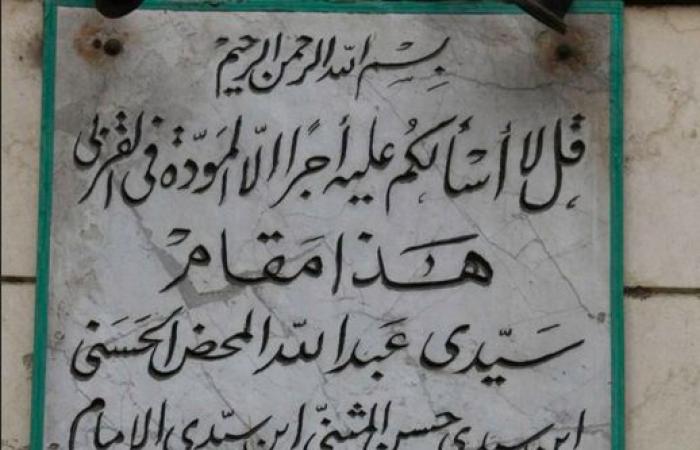 بسم الله الرحمن الرحيم
قل لا أسألكم عليه أجرًا الّا المودّة فى القربى
هذا مقام
سيّدى عبد الله المحض الحسنى
ابن سيدى حسن المثنّى ابن سيّدى الامام